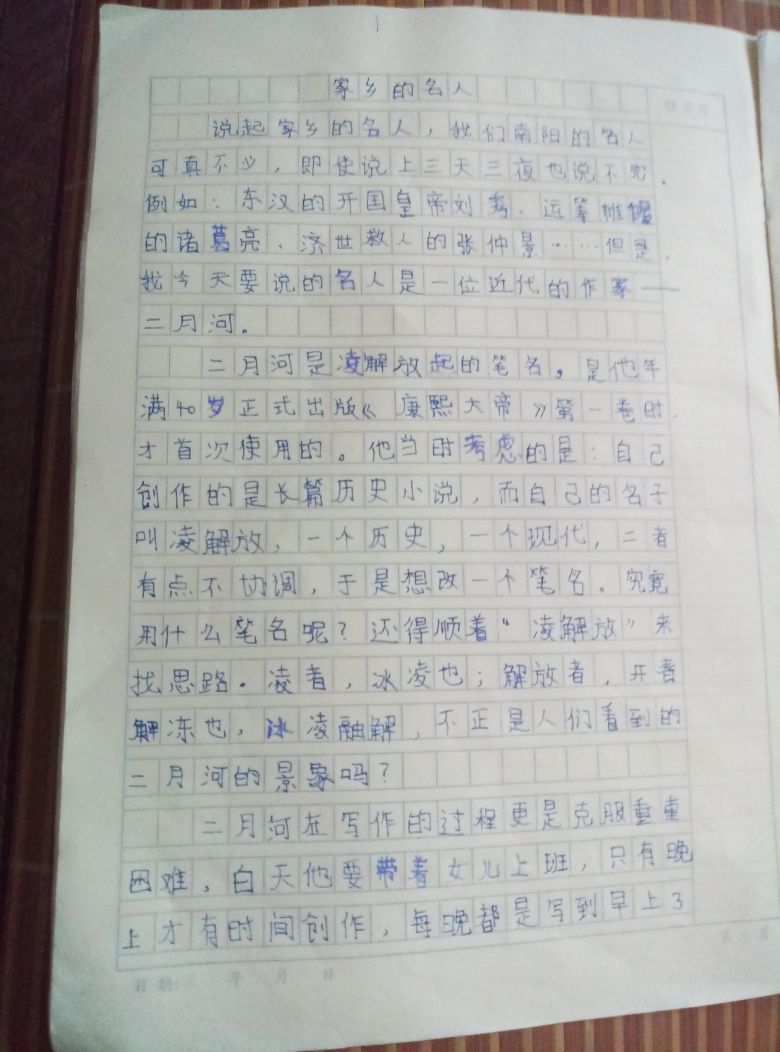 1
家乡的名人
说起家乡的名人，我们南阳的名人
可真不少，即使说上三天三夜也说不完。
例如：东汉的开国皇帝刘秀、运筹帷幄
的诸葛亮、济世救人的张仲景……但是，
我今天要说的名人是一位近代的作家——
二月河。
二月河是凌解放起的笔名。是他年
满40岁正式出版《康熙大帝》第一卷时，
才首次使用的。他当时考虑的是：自己
创作的是长篇历史小说，而自己的名子
叫凌解放，一个历史，一个现代，二者
有点不协调，于是想改一个笔名。究竟
用什么笔名呢？还得顺着“凌解放”来
找思路。凌者，冰凌也；解放者，开着
解冻也，冰凌融解，不正是人们看到的
二月河的景象吗？
二月河在写作的过程更是克服重重
困难，白天他要带着女儿上班，只有晚
上才有时间创作，每晚都是写到早上3
日期： 年 月 日